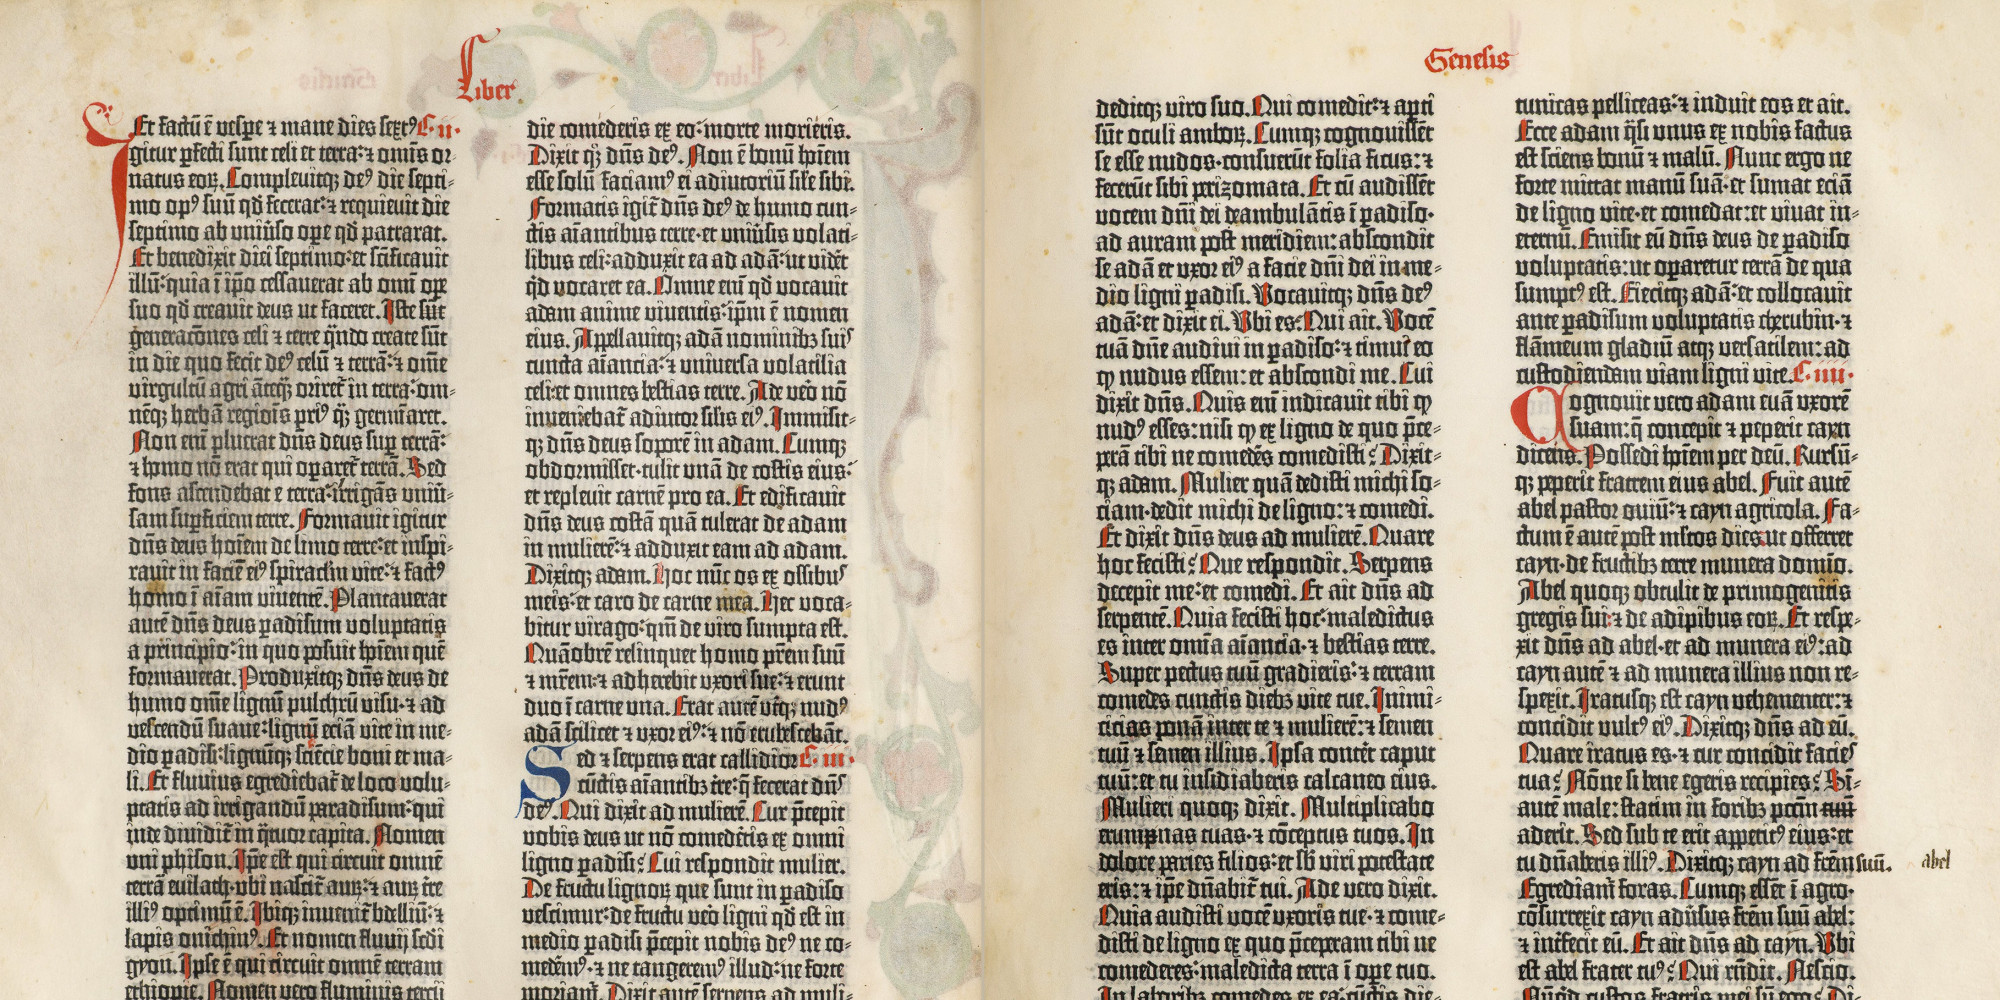 Liber
Et factū ē vespe ⁊ mane dies sextꝰ C. II.
Igitur ꝑfecti sunt celi et terra: ⁊ omīs or⸗
natus eoꝝ. Complevitqꝫ deꝰ die septi⸗
mo opꝰ suū qd̄ fecerat: ⁊ requievit die
septimo ab universo oꝑe qd̄ patrarat.
Et benedixit diei septimo: et sc̄ificavit
illū: quia ī ip̄o cessaverat ab omī oꝑe
suo qd̄ creavit deus ut faceret. Iste sūt
generacōnes celi ⁊ terre q̄ndo create sūt
in die quo fecit deꝰ celū ⁊ terrā: ⁊ om̄e
virgultū agri ātequā oriret̄ in terra: om⸗
nēqꝫ herbā regiōis priꝰ q̄ꝫ germīaret.
Non em̄ pluerat dn̄s deus suꝑ terrā:
⁊ homo nō erat qui oꝑaret̄ terrā. Sed
fons ascendebat e terra: irrigās univē⸗
sam suꝑficiem terre. Formavit igitur
dn̄s deus hoīem de limo terre: et inspi⸗
ravit in faciē eiꝰ spiraclm̄ vite: ⁊ factꝰ ē
homo ī aīam viventē. Plantaverat
autē dn̄s deus ꝑadisum voluptatis
a principio: in quo posuit hoīem quē
formaverat. Produxitqꝫ dn̄s deus de
humo om̄e lignū pulchrū visu· ⁊ ad
vescendū suave: lignū eciā vite in me⸗
dio ꝑadisi: lignūqꝫ sciēcie boni et ma⸗
li. Et fluvius egrediebat̄ de loco volu⸗
ptatis ad irrigandū paradisum: qui
inde dividit̄ in q̄tuor capita. Nomen
uni phison. Ipse est qui circuit omnē
terrā evilath· ubi nascit̄ auꝝ: ⁊ auꝝ t̄re
illiꝰ optimū ē. Ibiqꝫ invenit̄ bdelliū· ⁊
lapis onichinꝰ. Et nomen fluvij scdi
gyon. Ipse ē qui circuit omnē terram
ethiopie. Nomen vero fluminis tercij
die comederis ex eo: morte morieris.
Dixit qꝫ dn̄s deꝰ. Non ē bonū hoīem
esse solū faciamꝰ ei adiutoriū sil̄e sibi.
Formatis igit̄ dn̄s deꝰ de humo cun⸗
ctis aīantibus terre· et univsis volati⸗
libus celi: adduxit ea ad adā: ut vidēt
q̄d vocaret ea. Omne em̄ qd̄ vocavit
adam anime viventis: ip̄m ē nomen
eius. Appellavitqꝫ adā nominibꝫ suis
cuncta aīancia: ⁊ universa volatilia
celi: et omnes bestias terre. Ade vēo nō
inveniebat̄ adiutor sil̄is eiꝰ. Immisit⸗
qꝫ dn̄s deus soporē in adam. Cumqꝫ
obdormisset· tulit unā de costis eius:
et replevit carnē pro ea. Et edificavit
dn̄s deus costā quā tulerat de adam
in mulierē: ⁊ adduxit eam ad adam.
Dixitqꝫ adam. Hoc nūc os ex ossibus
meis: et caro de carne mea. Hec voca⸗
bitur virago: qm̄ de viro sumpta est.
Quāobrē relinquet homo pr̄em suū
⁊ mr̄em· ⁊ adherebit uxori sue: ⁊ erunt
duo ī carne una. Erat autē utqꝫ nudꝰ
adā scilicet ⁊ uxor eiꝰ: ⁊ nō erubescebāt.
Sed ⁊ serpens erat callidior C. III.
cūctis aīantibꝫ t̄re: q̄ fecerat dn̄s
deꝰ. Qui dixit ad mulierē. Cur p̄cepit
vobis deus ut nō comedētis ex omni
ligno ꝑadisi? Cui respondit mulier.
De fructu lignoꝝ que sunt in ꝑadiso
vescimur: de fructu vēo ligni qd̄ est in
medio ꝑadisi p̄cepit nobis deꝰ ne co⸗
medēmꝰ· ⁊ ne tangeremꝰ illud: ne forte
moriamur. Dixit autē serpens ad muli⸗
Genesis
deditqꝫ viro suo. Qui comedit: ⁊ apti
sūt oculi amboꝝ. Cumqꝫ cognovissēt
se esse nudos· consuerūt folia ficus: ⁊
fecerūt sibi perizomata. Et cū audissēt
vocem dn̄i dei deambulātis ī ꝑadiso·
ad auram post meridiem: abscondit
se adā et uxor eiꝰ a facie dn̄i dei in me⸗
dio ligni ꝑadisi. Vocavitqꝫ dn̄s deꝰ
adā: et dixit ei. Ubi es? Qui ait. Vocē
tuā dn̄e audivi in ꝑadiso: ⁊ timui eo
ꝙ nudus essem: et abscondi me. Cui
dixit dn̄s. Quis em̄ indicavit tibi ꝙ
nudꝰ esses: nisi ꝙ ex ligno de quo p̄ce⸗
perā tibi ne comedēs comedisti? Dixit⸗
qꝫ adam. Mulier quā dedisti michi so⸗
ciam· dedit michi de ligno: ⁊ comedi.
Et dixit dn̄s deus ad mulierē. Quare
hoc fecisti? Que respondit. Serpens
decepit me: et comedi. Et ait dn̄s ad
serpentē. Quia fecisti hoc· maledictus
es inter omīa aīancia· ⁊ bestias terre.
Super pectus tuū gradieris: ⁊ terram
comedes cunctis diebꝫ vite tue. Inimi⸗
cicias ponā inter te ⁊ mulierē: ⁊ semen
tuū ⁊ semen illius. Ipsa conter̄t caput
tuū: et tu insidiaberis calcaneo eius.
Mulieri quoqꝫ dixit. Multiplicabo
erumpnas tuas· ⁊ cōceptus tuos. In
dolore paries filios: et sb̄ viri potestate
eris: ⁊ ip̄e dn̄abit̄ tui. Ade vero dixit.
Quia audisti vocē uxoris tue· ⁊ come⸗
disti de ligno ex quo p̄ceperam tibi ne
comederes: maledicta terra ī oꝑe tuo.
In laboribꝫ comedes ex ea cūctis die⸗
tunicas pelliceas: ⁊ induit eos et ait.
Ecce adam q̄si unus ex nobis factus
est sciens bonū ⁊ malū. Nunc ergo ne
forte mittat manū suā· et sumat eciā
de ligno vite· et comedat: et vivat in⸗
eternū. Emisit eū dn̄s deus de ꝑadiso
voluptatis: ut oꝑaretur terrā de qua
sumptꝰ est. Eiecitqꝫ adā: et collocavit
ante ꝑadisum voluptatis cherubin· ⁊
flāmeum gladiū atqꝫ versatilem: ad
custodiendam viam ligni vite. C. IIII.
Cognovit vero adam euā uxorē
suam: q̄ concepit ⁊ peperit cayn
dicens. Possedi hoīem per deū. Rursū⸗
qꝫ peperit fratrem eius abel. Fuit autē
abel pastor oviū: ⁊ cayn agricola. Fa⸗
ctum ē autē post ml̄tos dies: ut offerret
cayn· de fructibꝫ terre munera domīo.
Abel quoqꝫ obtulit de primogenitis
gregis sui: ⁊ de adipibus eoꝝ. Et respe⸗
xit dn̄s ad abel· et ad munera eiꝰ: ad
cayn autē ⁊ ad munera illius non re⸗
spexit. Iratusqꝫ est cayn vehementer: ⁊
concidit vultꝰ eiꝰ. Dixitqꝫ dn̄s ad eū.
Quare iratus es· ⁊ cur concidit facies
tua? Nōne si bene egeris recipies? Si⸗
autē male: statim in foribꝫ pctm̄ tuū
aderit. Sed sub te erit appetitꝰ eius: et
tu dn̄aberis illiꝰ. Dixitqꝫ cayn ad frēm suū. abel
Egrediam̄ foras. Cumqꝫ essēt ī agro·
cōsurrexit cayn adūsus frēm suū abel:
⁊ int̄fecit eū. Et ait dn̄s ad cayn. Ubi
est abel frater tuꝰ? Qui rn̄dit. Nescio.
Nūqd custos fratris mei sū ego? Di⸗